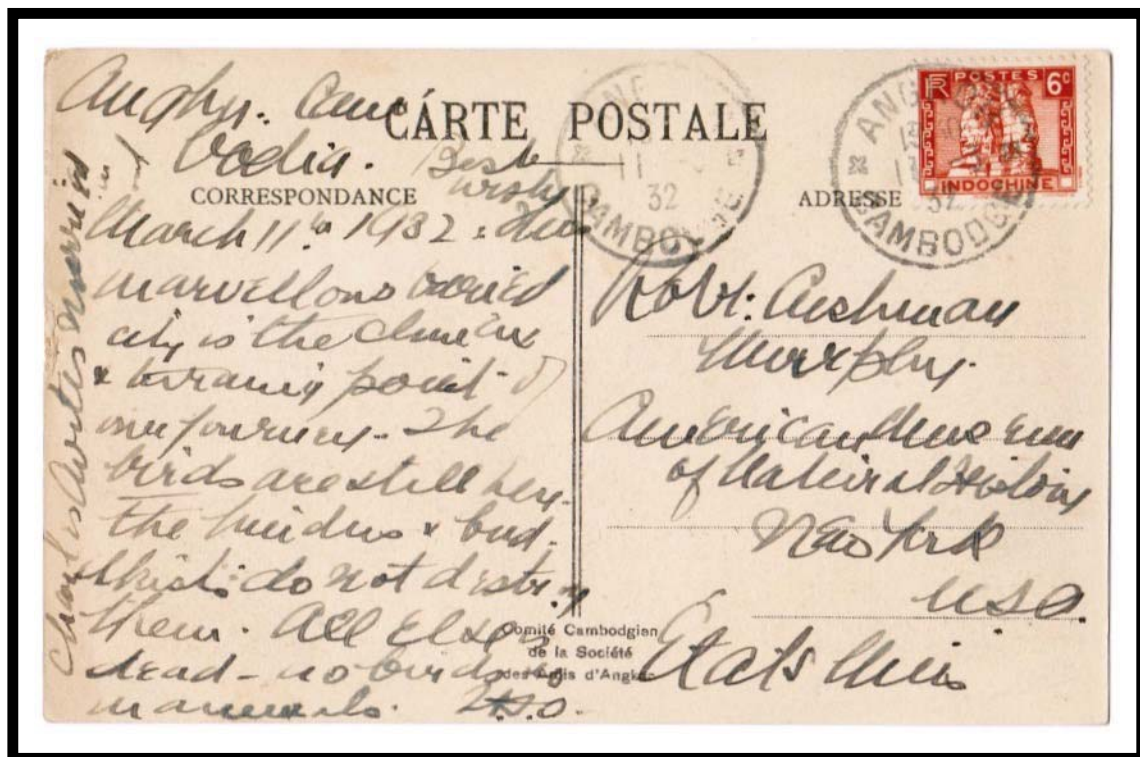 CARTE POSTALE
CORRESPONDANCE
ADRESSE
Angkor. Cam
bodia. Best
wishes
March 11th 1932. This
marvellous buried
city is the climax
& turning point of
our journey. The
birds are still here.
the hindus & bud-
dhists do not destroy
them. All else is
dead - no birds or
mammals.
Charles
Comité Cambodgien
de la Société
des Amis d'Angkor
Robt: Cushman
Murphy.
American Museum
of Natural History
New York
USA.
Etats Unis
ANG
11
32
CAMBODGE
ANG
32
CAMBODGE
RF POSTES 6c
INDOCHINE